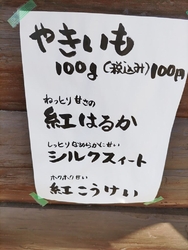 やきいも
100g(税込み)100円
ねっとり甘さの
紅はるか
しっとりなめらか
シルクスィート
ホクホク
紅こうけい